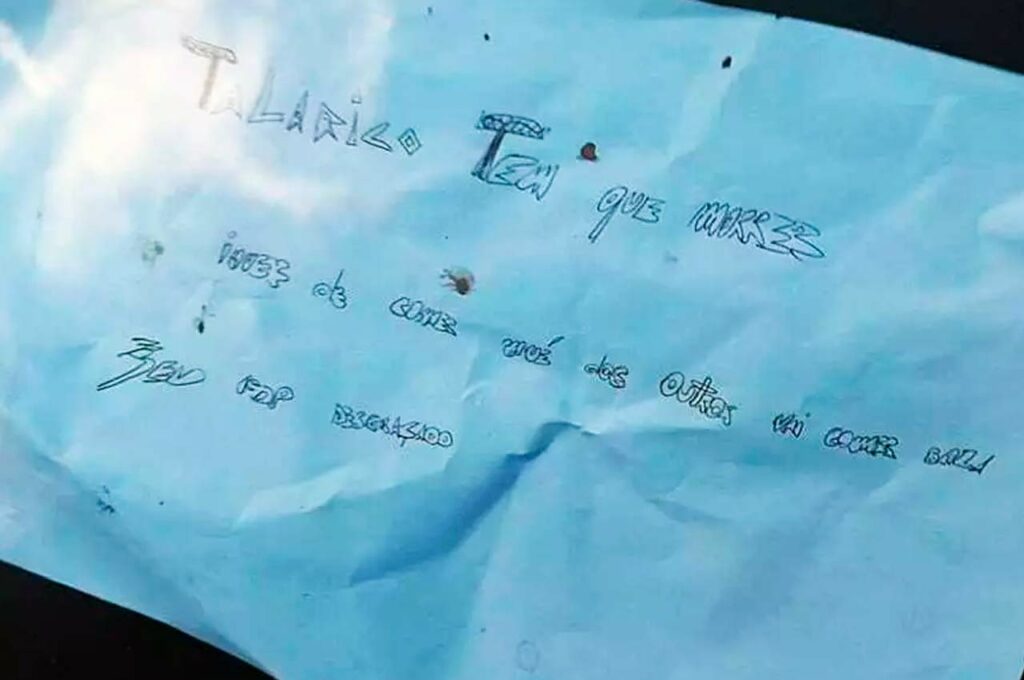 TaLARiCO TEM QUE MORRER
iNVEZ de COMER MUÉ dos OUtRos VAi COMER BALA
SEU FDP DESGRAÇADO